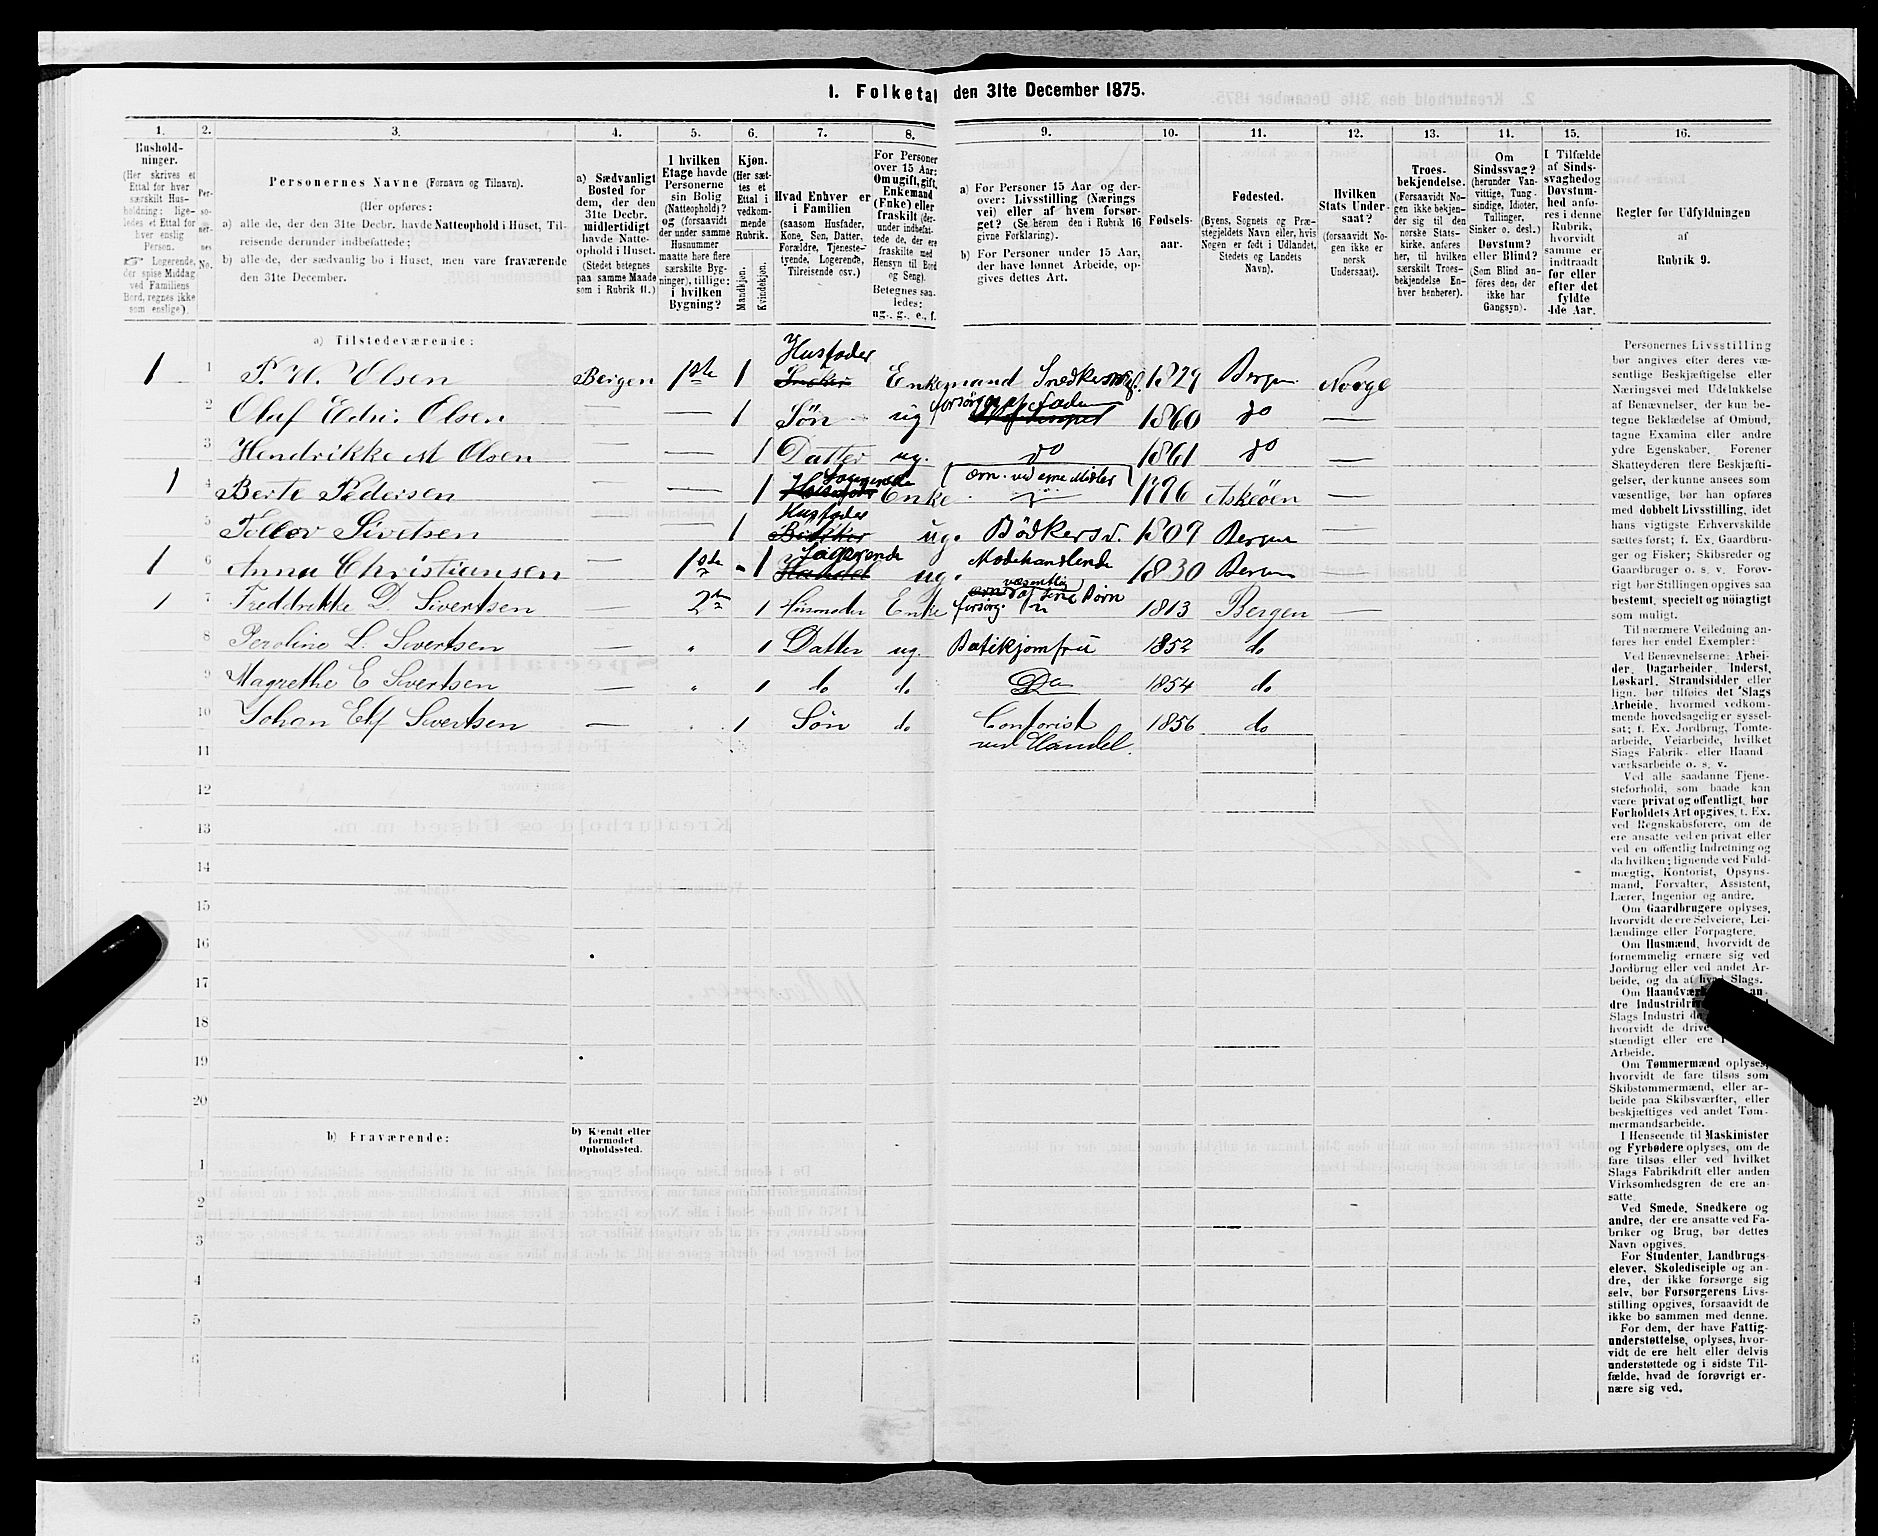 1. Folketal den 31te December 1875.
1. 2. 3. 4. 5. 6. 7. 8. 9. 10. 11. 12. 13. 14. 15. 16.
Hushold-
ninger.
(Her skrives et
Ettal for hver
særskilt Hus-
holdning; lige-
ledes et Ettal for
hver enslig
Person.
☞ Logerende,
der spise Middag
ved Familiens
Bord, regnes ikke
som enslige).
Per-
so-
ner-
nes
No.
Personernes Navne (Fornavn og Tilnavn).
(Her opføres:
a) alle de, der den 31te Decbr. havde Natteophold i Huset, Til-
reisende derunder indbefattede;
b) alle de, der sædvanlig bo i Huset, men vare fraværende
den 31te December.
a) Sædvanligt
Bosted for
dem, der den
31te Decbr.
midlertidigt
havde Natte-
ophold i Huset.
(Stedet betegnes
paa samme Maade
som i Rubrik 11.)
I hvilken
Etage havde
Personerne
sin Bolig
(Natteophold)?
og (forsaavidt
der under samme
Husnummer
maatte høre flere
særskilte Byg-
ninger), tillige:
i hvilken
Bygning?
Kjøn.
(Her sæt-
tes et
Ettal i
vedkom-
mende
Rubrik.
Mandkjøn.
Kvindekjøn.
Hvad Enhver er
i Familien
(saasom Husfader,
Kone, Søn, Datter,
Forældre, Tjeneste-
tyende, Logerende,
Tilreisende osv.)
For Personer
over 15 Aar:
Om ugift, gift,
Enkemand
(Enke) eller
fraskilt (der-
under indbefat-
tede de, der ere
fraskilte med
Hensyn til Bord
og Seng).
Betegnes saa-
ledes:
ug., g., e., f.
a) For Personer 15 Aar og der-
over: Livsstilling (Nærings
vei) eller af hvem forsør-
get? (Se herom den i Rubrik 16
givne Forklaring).
b) For Personer under 15 Aar,
der have lønnet Arbeide, op-
gives dettes Art.
Fødsels-
aar.
Fødested.
(Byens, Sognets og Præ-
stegjeldets Navn eller, hvis
Nogen er født i Udlandet,
Stedets og Landets
Navn).
Hvilken
Stats Under-
saat?
(forsaavidt No-
gen ikke er
norsk
Undersaat).
Troes-
bekjendelse.
(Forsaavidt No-
gen ikke bekjen-
der sig til den
norske Stats-
kirke, anføres
her, til hvilken
særskilt Troes-
bekjendelse En-
hver henhører).
Om
Sindssvag?
(herunder Van-
vittige, Tung-
sindige, Idioter,
Tullinger,
Sinker o. desl.)
Døvstum?
eller Blind?
(Som Blind an-
føres den, der
ikke har
Gangsyn).
I Tilfælde
af Sinds-
svaghed og
Døvstum-
hed anfø-
res i denne
Rubrik,
hvorvidt
samme er
indtraadt
før eller
efter det
fyldte
4de Aar.
Regler for Udfyldningen
af
Rubrik 9.
a) Tilstedeværende:
1 1 P. H. Olsen Bergen 1ste 1 Husfader Enkemand Snedkersv. 1829 Bergen Norge
2 Oluf Edv. Olsen — — 1 Søn ug forsørges af Fader 1860 do —
3 Hendrikke M Olsen — — 1 Datter ug. do 1861 do
1 4 Berte Pedersen — — 1 Logerende Enke ern. ved egne Midler 1796 Askøen —
5 Tollev Sivetsen — — 1 Husfader ug. Bödkersv. 1809 Bergen —
1 6 Anna Christiansen — 1ste 1 Logerende ug. Modehandlende 1830 Bergen —
1 7 Freddrikke D. Sivertsen — 2den 1 Husmoder Enke forsørg. væsentlig af sine Börn 1813 Bergen —
8 Peroline L. Sivertsen — " 1 Datter ug. Butikjomfru 1852 do
9 Magrethe E Sivertsen — " 1 do do Do 1854 do
10 Johan Elf Sivertsen — " 1 Søn do Contorist 1856 do
ved Handel.
11
12
13
14
15
16
17
18
19
20
b) Fraværende:
b) Kjendt eller
formodet
Opholdssted.
1
2
3
4
5
6
Personernes Livsstilling
bør angives efter deres væ-
sentlige Beskjæftigelse eller
Næringsvei med Udelukkelse
af Benævnelser, der kun be-
tegne Beklædelse af Ombud,
tagne Examina eller andre
ydre Egenskaber. Forener
Skatteyderen flere Beskjæfti-
gelser, der kunne ansees som
væsentlige, bør han opføres
med dobbelt Livsstilling, idet
hans vigtigste Erhvervskilde
sættes først; f. Ex. Gaardbru-
ger og Fisker; Skibsreder og
Gaardbruger o. s. v. Forøv-
rigt bør Stillingen opgives saa
bestemt, specielt og nöiagtigt
som muligt.
Til nærmere Veiledning an-
føres her endel Exempler:
Ved Benævnelserne: Arbei-
der, Dagarbeider, Inderst,
Løskarl, Strandsidder eller
lign. bør tilføies det Slags
Arbeide, hvormed vedkom-
mende hovedsagelig er syssel-
sat; f. Ex. Jordbrug, Tomte-
arbeide, Veiarbeide, hvilket
Slags Fabrik- eller Haand
værksarbeide o. s. v.
Ved alle saadanne Tjene-
steforhold, som baade kan
være privat og offentligt, bør
Forholdets Art opgives, f. Ex.
ved Regnskabsførere, om de
ere ansatte ved en privat eller
ved en offentlig Indretning og
da hvilken; lignende ved Fuld-
mægtig, Kontorist, Opsyns-
mand, Forvalter, Assistent,
Lærer, Ingeniør og andre.
Om Gaardbrugere oplyses,
hvorvidt de ere Selveiere, Lei-
lændinge eller Forpagtere.
Om Husmænd, hvorvidt de
fornemmelig ernære sig ved
Jordbrug eller ved andet Ar-
beide, og da af hvad Slags.
Om Haandværkere og an-
dre Industridrivende
Slags Industri de
hvorvidt de drive
stændigt eller ere i
Arbeide.
Om Tømmermænd oplyses,
hvorvidt de fare tilsøs som
Skibstømmermænd, eller ar-
beide paa Skibsværfter, eller
beskjæftiges ved andet Tøm-
mermandsarbeide.
I Henseende til Maskinister
og Fyrbødere oplyses, om de
fare tilsøs eller ved hvilket
Slags Fabrikdrift eller anden
Virksomhedsgren de ere an-
satte.
Ved Smede, Snedkere og
andre, der ere ansatte ved Fa-
briker og Brug, bør dettes
Navn opgives.
For Studenter, Landbrugs-
elever, Skoledisciple og an-
dre, der ikke forsørge sig
selv, bør Forsørgerens Livs-
stilling opgives, forsaavidt de
ikke bo sammen med denne.
For dem, der have Fattig-
understøttelse, oplyses, hvor-
vidt de ere helt eller delvis
understøttede og i sidste Til-
fælde, hvad de forøvrigt er-
nære sig ved.